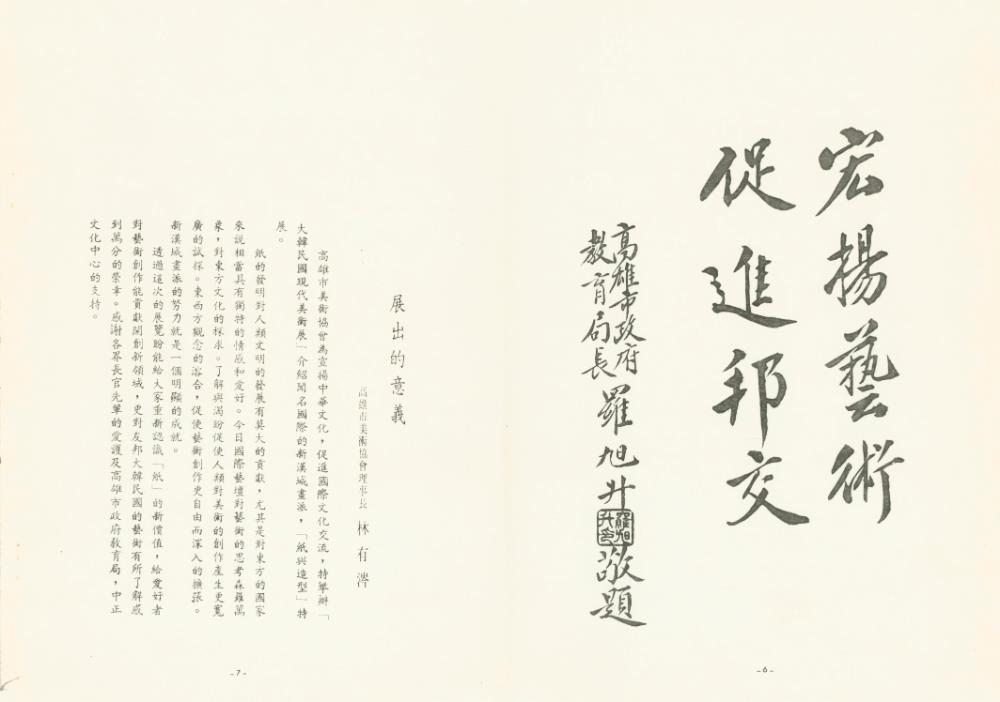 宏揚藝術
促進邦交
高雄市政府
教育局長
羅旭升
羅旭升印
敬題
-6-
展出的意義
高雄市美術協會理事長 林有涔
高雄市美術協會為宣揚中華文化,促進國際文化交流,特舉辦「
大韓民國現代美術展」介紹聞名國際的新漢城畫派,「紙與造型」特
展。
紙的發明對人類文明的發展有莫大的貢獻,尤其是對東方的國家
來說相當具有獨特的情感和愛好。今日國際藝壇對藝術的思考森羅萬
象,對東方文化的探求。了解與渴盼促使人類對美術的創作產生更寬
廣的試探。東西方觀念的溶合,促使藝術創作更自由而深入的擴張。
新漢城畫派的努力就是一個明顯的成就。
透過這次的展覽盼能給大家重新認識「紙」的新價值,給愛好者
對藝術創作能貢獻開創新領域,更對友邦大韓民國的藝術有所了解感
到萬分的榮幸。感謝各界長官先輩的愛護及高雄市政府教育局,中正
文化中心的支持。
-7-